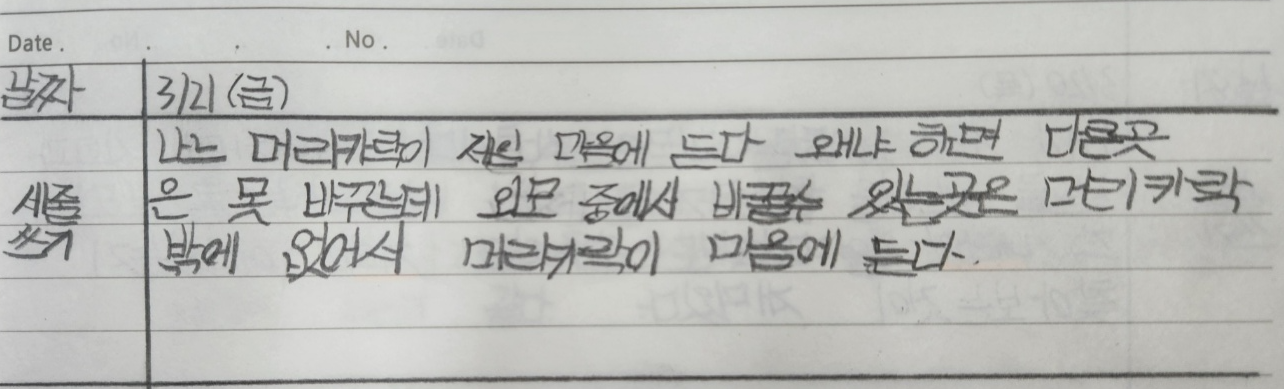 Date . . . . No .
날짜 3/21 (금)
나는 머리카락이 제일 마음에 든다 왜냐 하면 다른곳
세줄 은 못 바꾸는데 외모 중에서 바꿀수 있는곳은 머리카락
쓰기 밖에 없어서 머리카락이 마음에 든다.